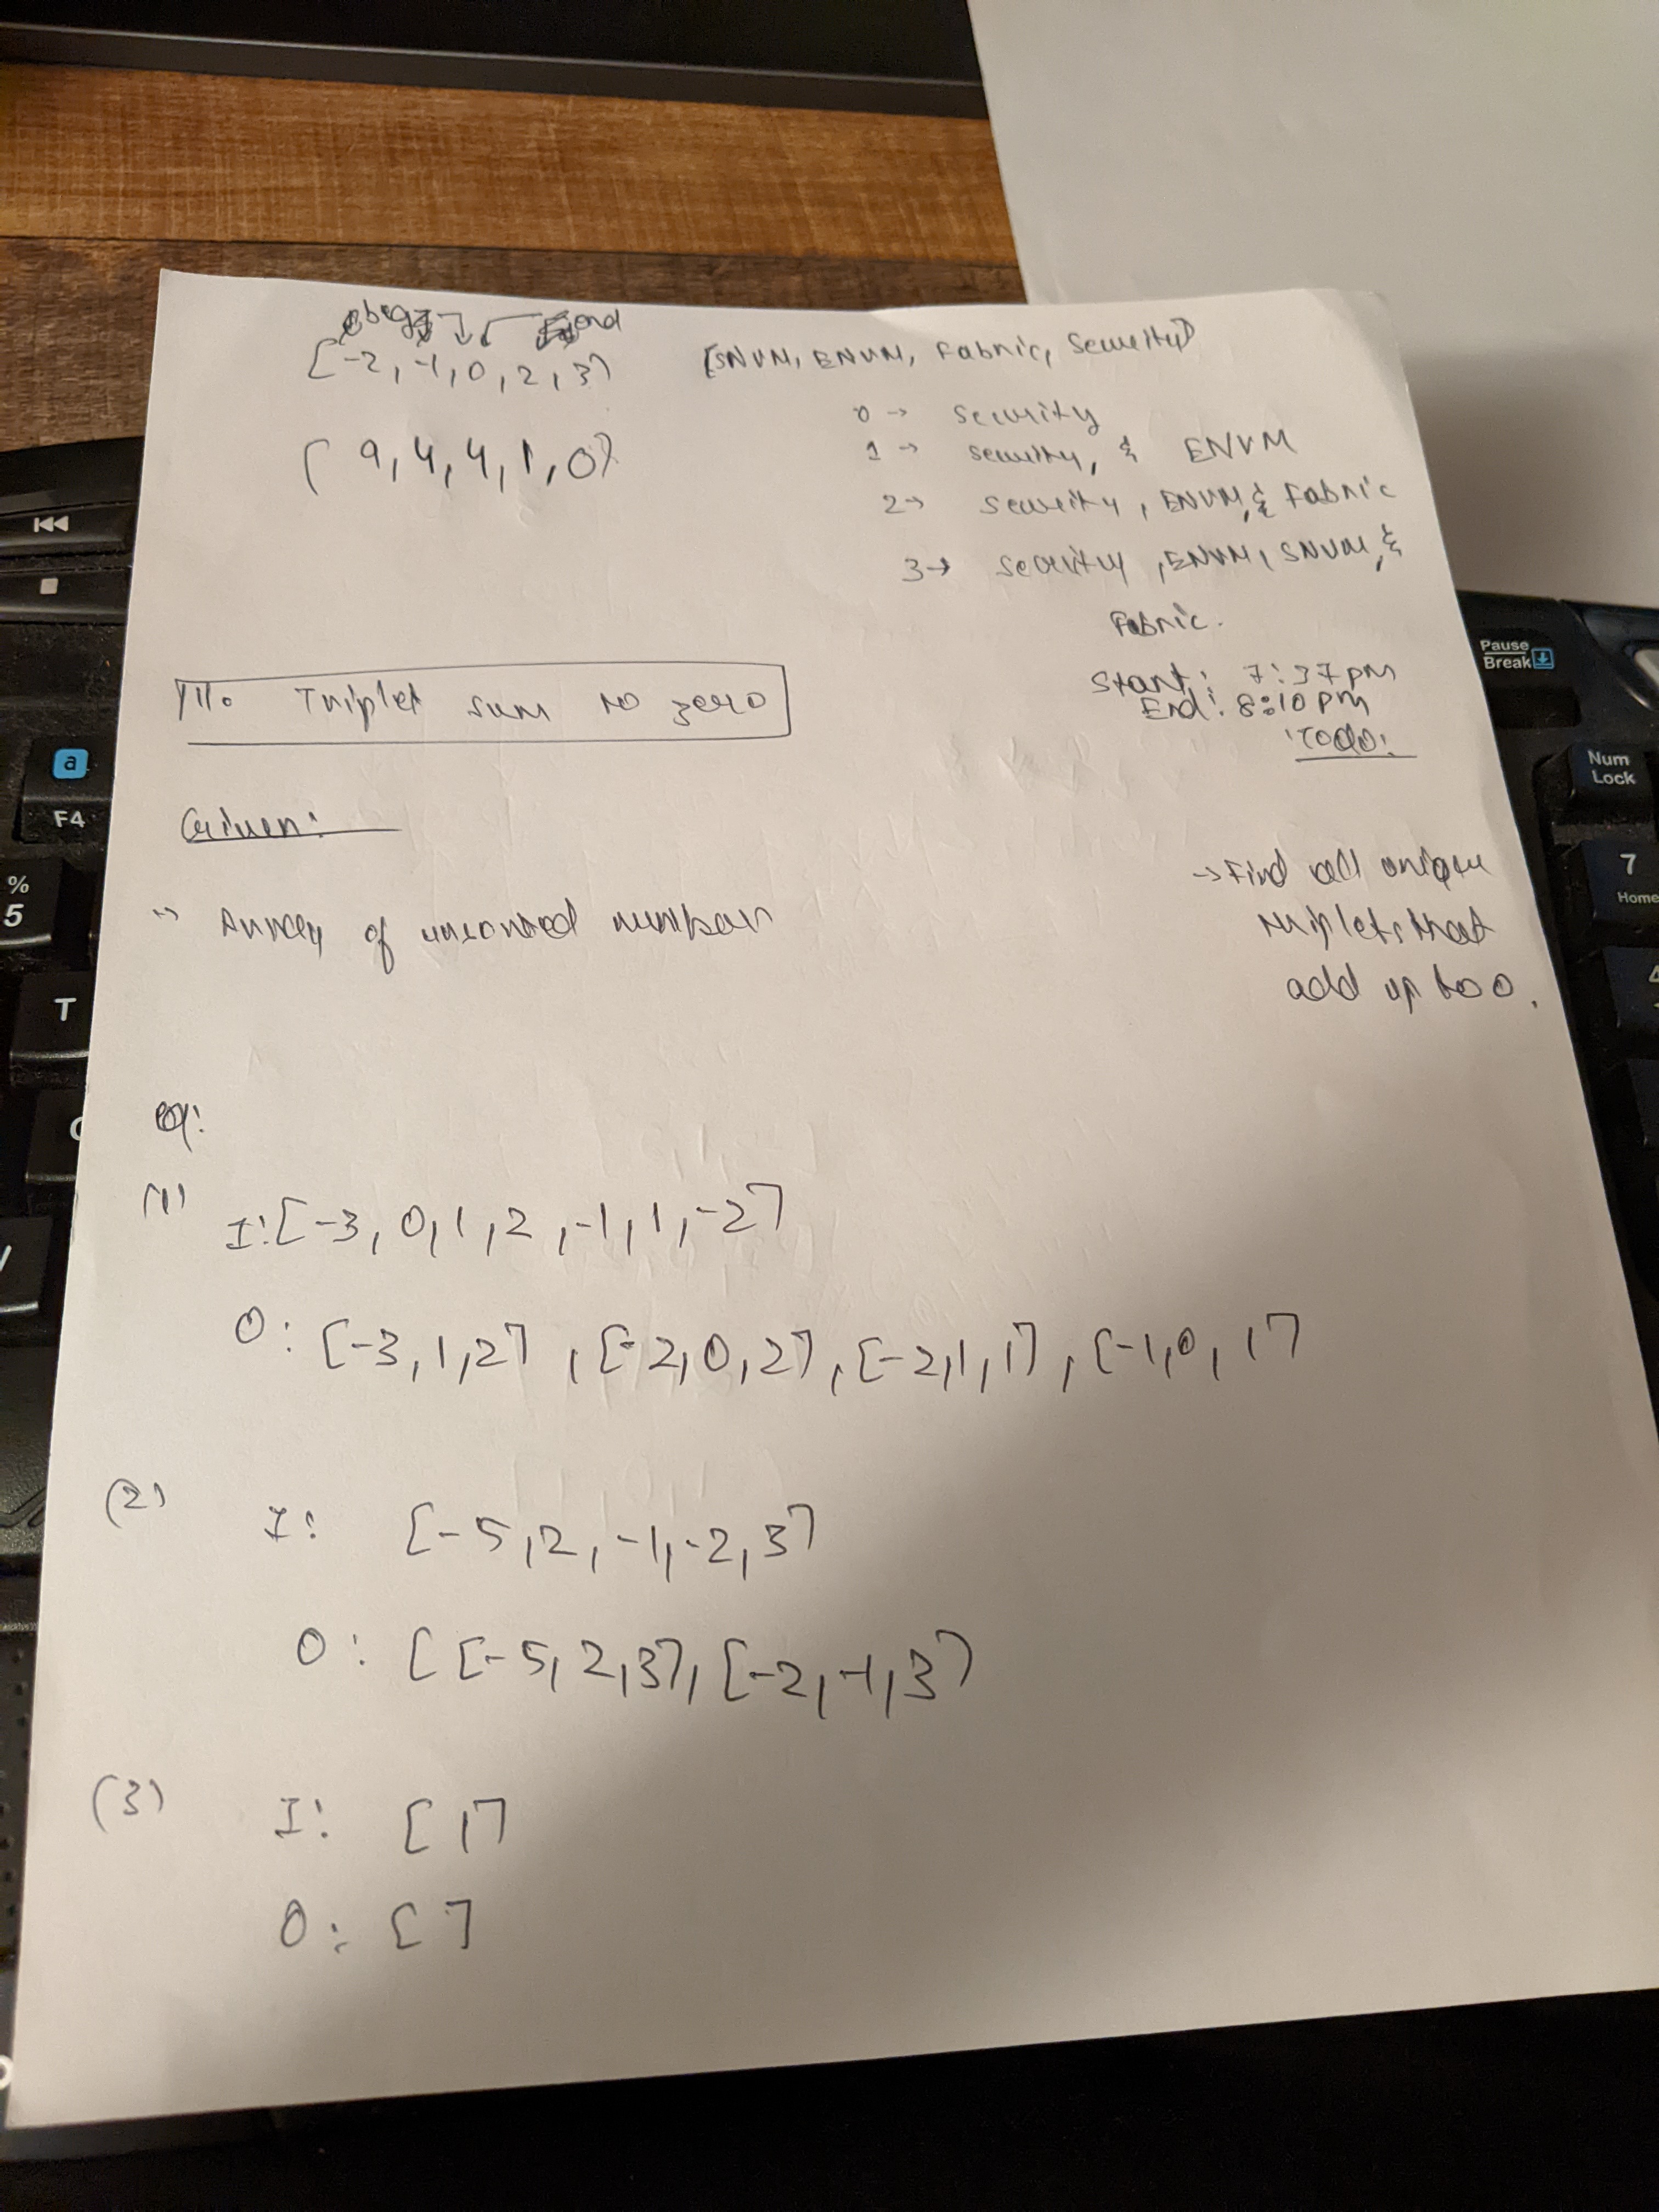 beg end
[-2, -1, 0, 2, 3]
[9, 4, 4, 1, 0]
[SNVM, ENVM, Fabric, Security]
0 → security
1 → security, & ENVM
2 → security, ENVM, & Fabric
3 → security, ENVM, SNVM, &
Fabric.
Start: 7:37 pm
End: 8:10 pm
Todo:
Triplet sum to zero
Given:
→ Array of unsorted numbers
→ Find all unique
triplets that
add up to 0.
(1)
I: [-3, 0, 1, 2, -1, 1, -2]
O: [-3, 1, 2], [-2, 0, 2], [-2, 1, 1], [-1, 0, 1]
(2)
I: [-5, 2, -1, -2, 3]
O: [[-5, 2, 3], [-2, -1, 3]
(3)
I: [1]
O: [ ]
Pause
Break
Num
Lock
7
Home
a
F4
%
5
T